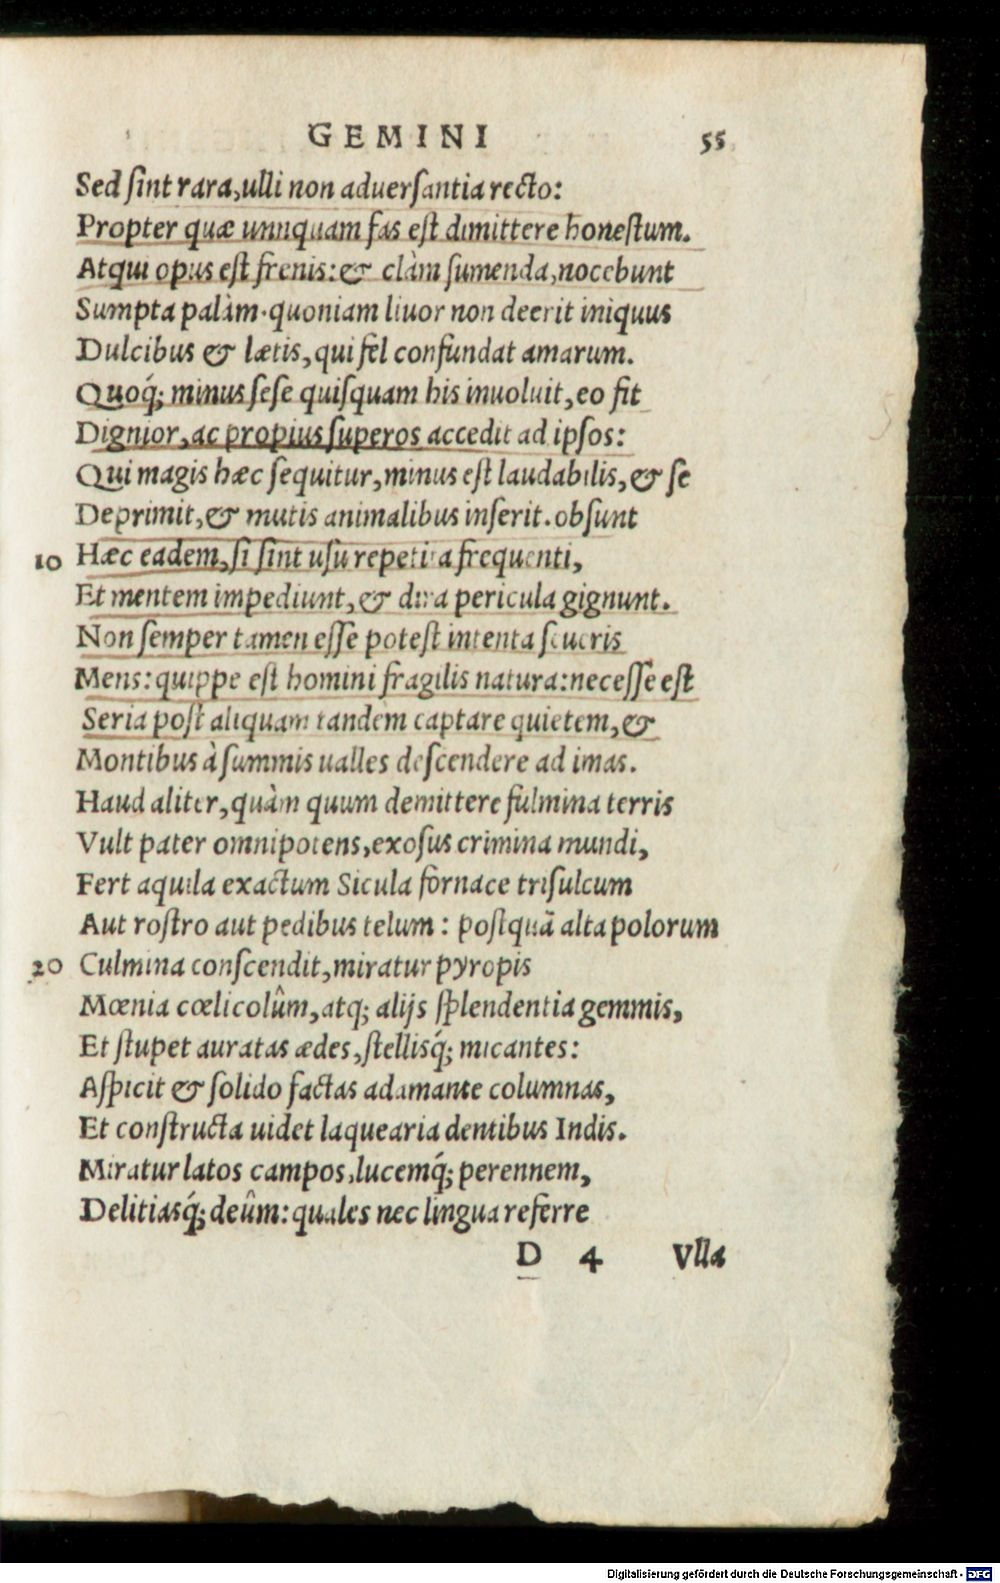 GEMINI 55
Sed ſint rara, ulli non aduerſantia recto:
Propter quæ unnquam fas eſt dimittere honeſtum.
Atqui opus eſt frenis: & clàm ſumenda, nocebunt
Sumpta palàm. quoniam liuor non deerit iniquus
Dulcibus & lætis, qui fel confundat amarum.
Quoq́; minus ſeſe quiſquam his inuoluit, eo fit
Dignior, ac propius ſuperos accedit ad ipſos:
Qui magis hæc ſequitur, minus eſt laudabilis, & ſe
Deprimit, & mutis animalibus inſerit. obſunt
10 Hæc eadem, ſi ſint uſu repetita frequenti,
Et mentem impediunt, & dira pericula gignunt.
Non ſemper tamen eſſe poteſt intenta ſeueris
Mens: quippe eſt homini fragilis natura: neceſſe eſt
Seria poſt aliquam tandem captare quietem, &
Montibus à ſummis ualles deſcendere ad imas.
Haud aliter, quàm quum demittere fulmina terris
Vult pater omnipotens, exoſus crimina mundi,
Fert aquila exactum Sicula fornace triſulcum
Aut roſtro aut pedibus telum: poſtquā alta polorum
20 Culmina conſcendit, miratur pyropis
Mœnia cœlicolûm, atq; alijs ſplendentia gemmis,
Et ſtupet auratas ædes, ſtellisq́; micantes:
Aſpicit & ſolido factas adamante columnas,
Et conſtructa uidet laquearia dentibus Indis.
Miratur latos campos, lucemq́; perennem,
Delitiasq́; deûm: quales nec lingua referre
D 4 Vlla
Digitalisierung gefördert durch die Deutsche Forschungsgemeinschaft - DFG